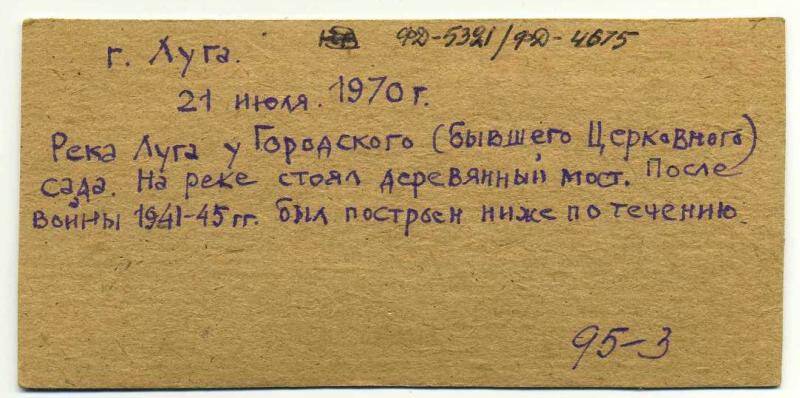 ФД-5321/ФД-4675
г. Луга.
21 июля. 1970 г.
Река Луга у Городского (бывшего Церковного)
сада. На реке стоял деревянный мост. После
войны 1941-45 гг. был построен ниже по течению
95-3